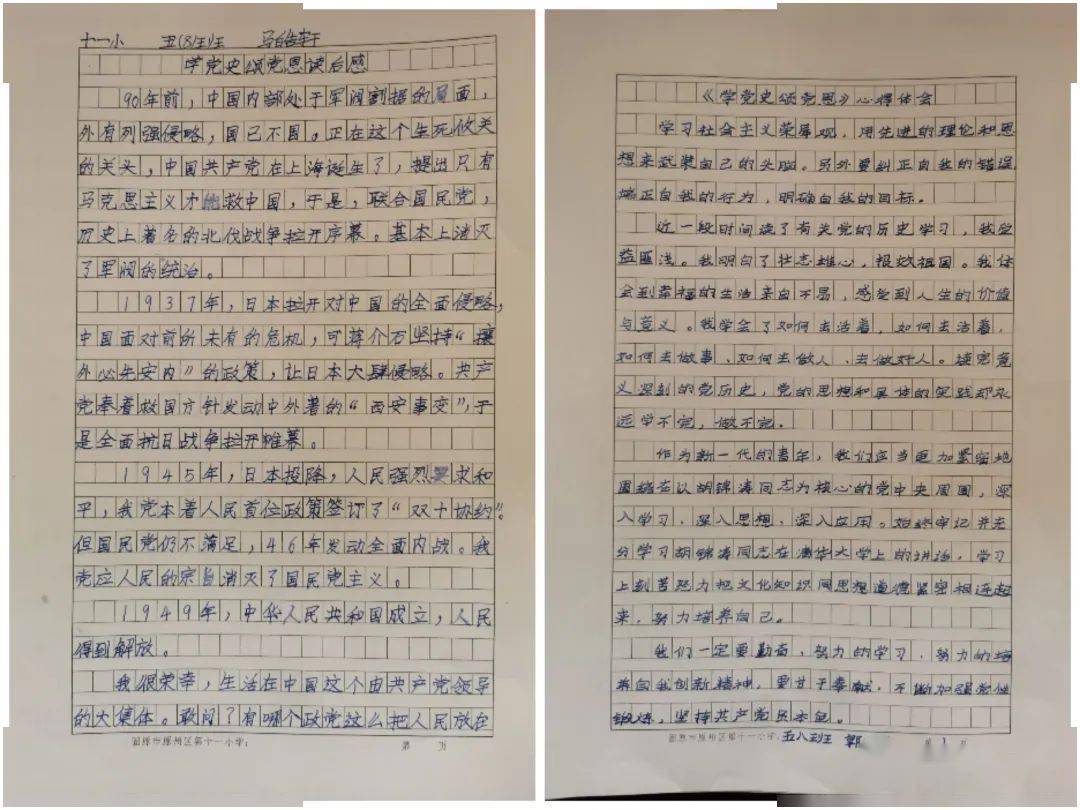 十一小 五(8)班 马皓轩
学党史颂党恩读后感
90年前，中国内部处于军阀割据的局面，
外有列强侵略，国已不国。正在这个生死攸关
的关头，中国共产党在上海诞生了，提出只有
马克思主义才能救中国，于是，联合国民党，
历史上著名的北伐战争拉开序幕。基本上消灭
了军阀的统治。
1937年，日本拉开对中国的全面侵略，
中国面对前所未有的危机，可蒋介石坚持“攘
外必先安内”的政策，让日本大肆侵略。共产
党奉着救国方针发动中外著的“西安事变”，于
是全面抗日战争拉开帷幕。
1945年，日本投降，人民强烈要求和
平，我党本着人民首位政策签订了“双十协约”。
但国民党仍不满足，46年发动全面内战。我
党应人民的宗旨消灭了国民党主义。
1949年，中华人民共和国成立，人民
得到解放。
我很荣幸，生活在中国这个由共产党领导
的大集体。敢问了有哪个政党这么把人民放在
固原市原州区第十一小学：
第 页
《学党史颂党恩》心得体会
学习社会主义荣辱观，用先进的理论和思
想来武装自己的头脑。另外要纠正自我的错误，
端正自我的行为，明确自我的目标。
近一段时间读了有关党的历史学习，我受
益匪浅。我明白了壮志雄心，报效祖国。我体
会到幸福的生活来自不易，感受到人生的价值
与意义。我学会了如何去活着，如何去活着，
如何去做事、如何去做人、去做好人。读完意
义深刻的党历史，党的思想和具体的实践却永
远学不完，做不完。
作为新一代的青年，我们应当更加紧密地
围绕在以胡锦涛同志为核心的党中央周围，深
入学习，深入思想，深入应用。始终牢记并充
分学习胡锦涛同志在清华大学上的讲话，学习
上刻苦努力把文化知识同思想道德紧密相连起
来，努力培养自己。
我们一定要勤奋，努力的学习，努力的培
养自我创新精神，要甘于奉献，不断加强党性
锻炼，坚持共产党员本色。
固原市原州区第十一小学：五八班 郭
第 1 页